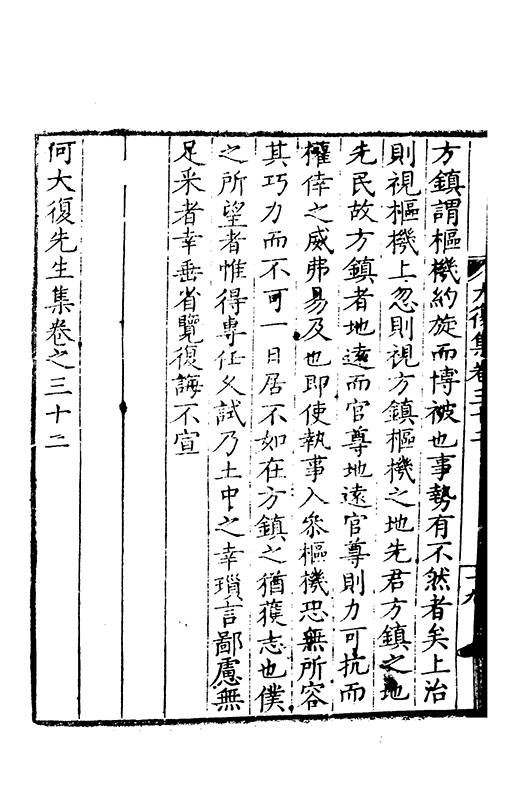 大復集卷三十二
十九
方鎮謂樞機約旋而博被也事勢有不然者矣上治
則視樞機上忽則視方鎮樞機之地先君方鎮之地
先民故方鎮者地遠而官尊地遠官尊則力可抗而
權倖之威弗易及也即使執事入參樞機恐無所容
其巧力而不可一日居不如在方鎮之猶獲志也僕
之所望者惟得專任久試乃土中之幸瑣言鄙慮無
足采者幸垂省覽復誨不宣
何大復先生集卷之三十二